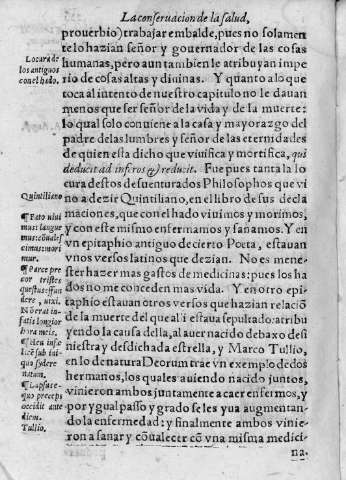 La conseruacion de la salud,
prouerbio) trabajar embalde, pues no solamen
te lo hazian señor y gouernador de las cosas
humanas, pero aun tambien le atribuyan impe
rio de cosas altas y diuinas. Y quanto alo que
toca al intento de nuestro capitulo no le dauan
menos que ser señor de la vida y de la muerte:
lo qual solo conuiene a la casa y mayorazgo del
padre de las lumbres y señor de las eternidades
de quien esta dicho que viuifica y mortifica, qui
deducit ad inferos & reducit. Fue pues tanta la lo
cura destos desuenturados Philosophos que vi
no a dezir Quintiliano, en el libro de sus decla
maciones, que con el hado viuimos y morimos,
y con este mismo enfermamos y sanamos. Y en
vn epitaphio antiguo de cierto Poeta, estauan
vnos versos latinos que dezian. No es mene-
ster hazer mas gastos de medicinas: pues los ha
dos no me conceden mas vida. Y en otro epi-
taphio estauan otros versos que hazian relaciõ
de la muerte del que alli estaua sepultado: atribu
yendo la causa della, al auer nacido debaxo de si
niestra y desdichada estrella, y Marco Tullio,
en lo de natura Deorum trae vn exemplo de dos
hermanos, los quales auiendo nacido juntos,
vinieron ambos juntamente a caer enfermos, y
por ygual passo y grado se les yua augmentan-
do la enfermedad: y finalmente ambos vinie-
ron a sanar y cõualecer cõ vna misma medici-
na.
Locura de
los antiguos
con el hado.
Quintiliano
¶Fato viui
mus: langue
mus: cõuales
cimus: mori
mur.
¶Parce pre
cor tristes
questus: effun
dere, vixi.
Nõ erat in
fatis longior
hora meis.
¶Heu infæ
licẽ sub ini-
quo sydere
natum.
¶Lapsus e-
quo præceps
occidit ante
diem.
Tullio.